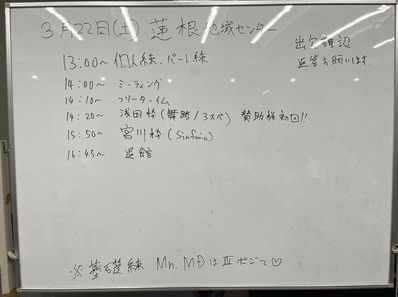 3月22日(土) 蓮根地域センター
出欠確認
返答お願いします
13:00〜 個人練・パート練
14:00〜 ミーティング
14:10〜 フリータイム
14:20〜 浅田枠(舞踏/3スペ) 賛助様初回!!
15:50〜 宮川枠(Sinfonia)
16:45〜 退館
※基礎練 Mn. MDはIIポジで♡